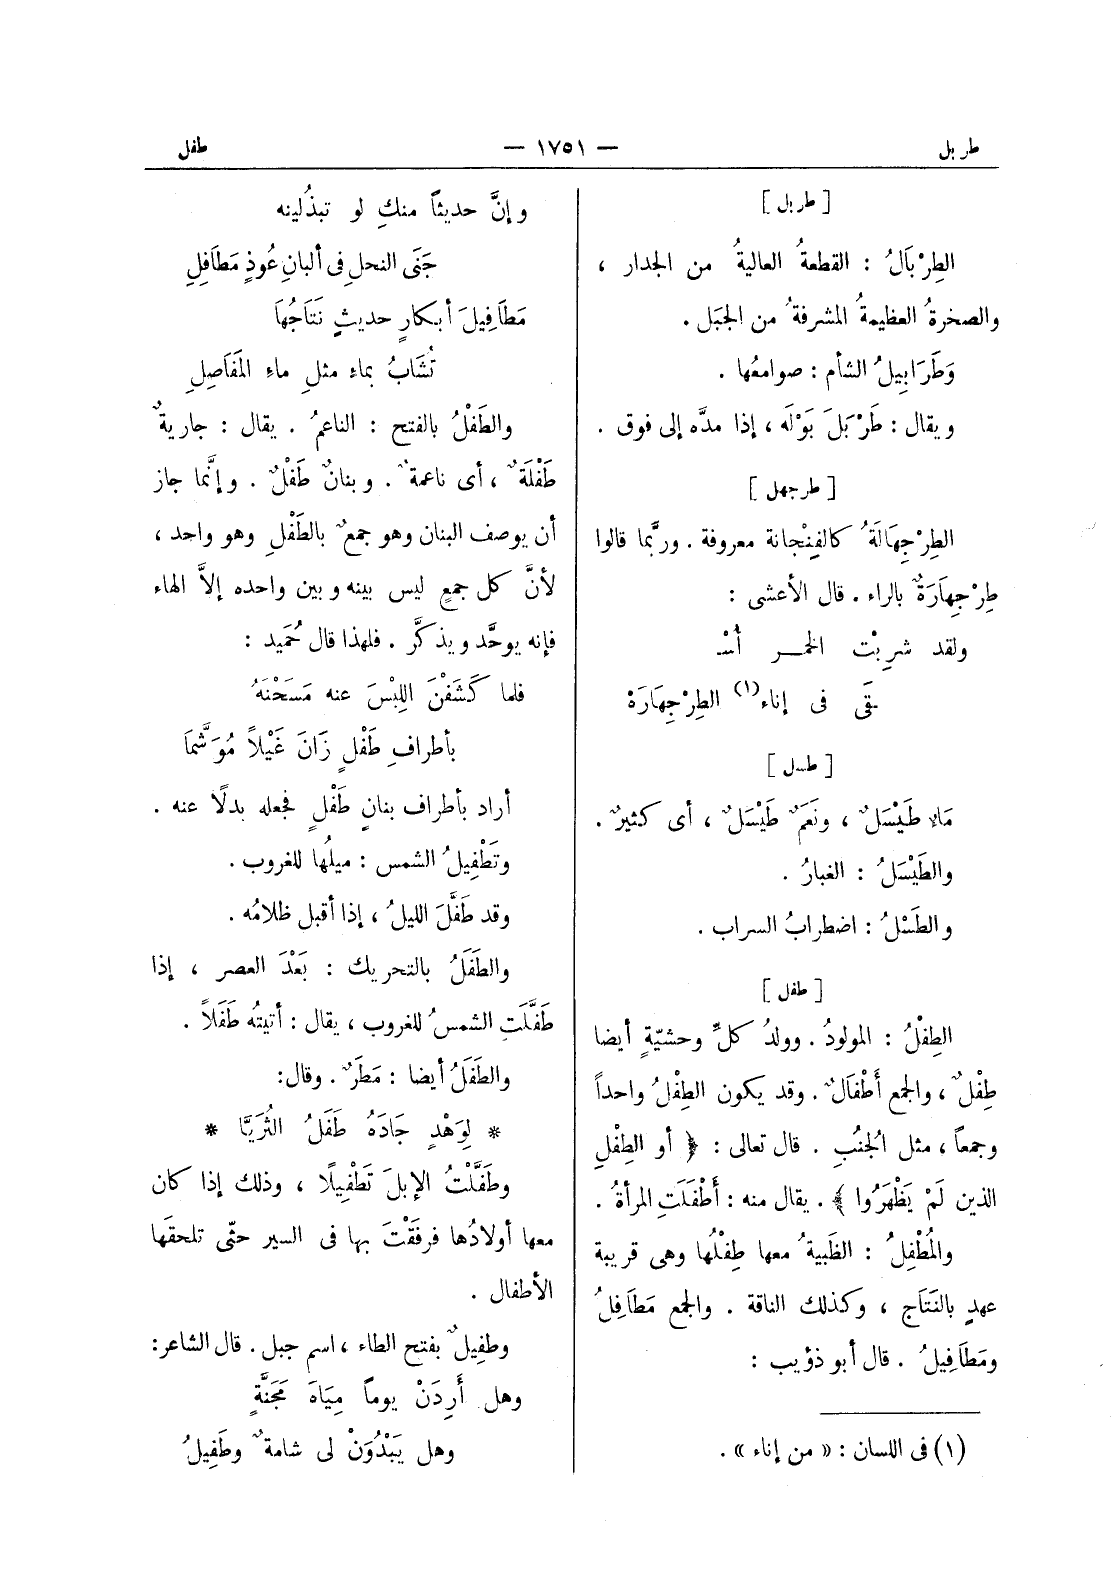 طربل — ١٧٥١ — طفل
[ طربل ]
الطِرْبَالُ : القطعةُ العاليةُ من الجدار ،
والصخرةُ العظيمةُ المشرفةُ من الجبَل .
وَطَرَابِيلُ الشأم : صوامعُها .
ويقال : طَرْبَلَ بَوْلَه ، إذا مدَّه إلى فوق .
[ طرجهل ]
الطِرْجِهَالَةُ كالفِنْجانة معروفة . وربَّما قالوا
طِرْجِهَارَةٌ بالراء . قال الأعشى :
ولقد شرِبْت الخمـر أُسْـ
ـقَى فى إناء(١) الطِرْجِهَارَهْ
[ طسل ]
مَالا طَيْسَلٌ ، ونَعَمٌ طَيْسَلٌ ، أى كثيرٌ .
والطَيْسَلُ : الغبارُ .
والطَسْلُ : اضطرابُ السراب .
[ طفل ]
الطِفْلُ : المولودُ . وولدُ كلِّ وحشيّةٍ أيضا
طِفْلٌ ، والجمع أَطْفَالٌ . وقد يكون الطِفْلُ واحداً
وجمعاً ، مثل الجُنُبِ . قال تعالى : ﴿ أو الطِفْلِ
الذين لَمْ يَظْهَرُوا ﴾ . يقال منه : أَطْفَلَتِ المرأةُ .
والمُطْفِلُ : الظَبيةُ معها طِفْلُها وهى قريبة
عهدٍ بالنَتَاج ، وكذلك الناقة . والجمع مَطَافِلُ
ومَطَافِيلُ . قال أبو ذؤيب :
(١) فى اللسان : « من إناء » .
وإنَّ حديثاً منكِ لو تبذُلينه
جَنَى النحلِ فى ألبانِ عُوذٍ مَطَافِلِ
مَطَافِيلَ أبكارٍ حديثٍ نَتَاجُهَا
تُشَابُ بماءٍ مثلِ ماءِ المَفَاصِلِ
والطَفْلُ بالفتح : الناعمُ . يقال : جاريةٌ
طَفْلَةٌ ، أى ناعمةٌ . وبنانٌ طَفْلٌ . وإنَّما جاز
أن يوصف البنان وهو جمعٌ بالطَفْلِ وهو واحد ،
لأنَّ كل جمعٍ ليس بينه وبين واحده إلاَّ الهاء
فإنه يوحَّد ويذكَّر . فلهذا قال حُمَيد :
فلما كَشَفْنَ اللِبْسَ عنه مَسَحْنَهُ
بأطرافِ طَفْلٍ زَانَ غَيْلاً مُوَشَّمَا
أراد بأطراف بنانٍ طَفْلٍ فجعله بدلًا عنه .
وتَطْفِيلُ الشمس : ميلُها للغروب .
وقد طَفَّلَ الليلُ ، إذا أقبل ظلامُه .
والطَفَلُ بالتحريك : بَعْدَ العصر ، إذا
طَفَّلَتِ الشمسُ للغروب ، يقال : أتيتُه طَفَلاً .
والطَفَلُ أيضا : مَطَرٌ . وقال:
* لِوَهْدٍ جَادَهُ طَفَلُ الثُرَيَّا *
وطَفَّلْتُ الإبلَ تَطْفِيلًا ، وذلك إذا كان
معها أولادُها فرفَقْتَ بها فى السير حتّى تلحقَها
الأطفال .
وطفِيلٌ بفتح الطاء ، اسم جبل . قال الشاعر:
وهل أَرِدَنْ يوماً مِيَاهَ مَجَنَّةٍ
وهل يَبْدُوَنْ لى شامةٌ وطَفِيلُ